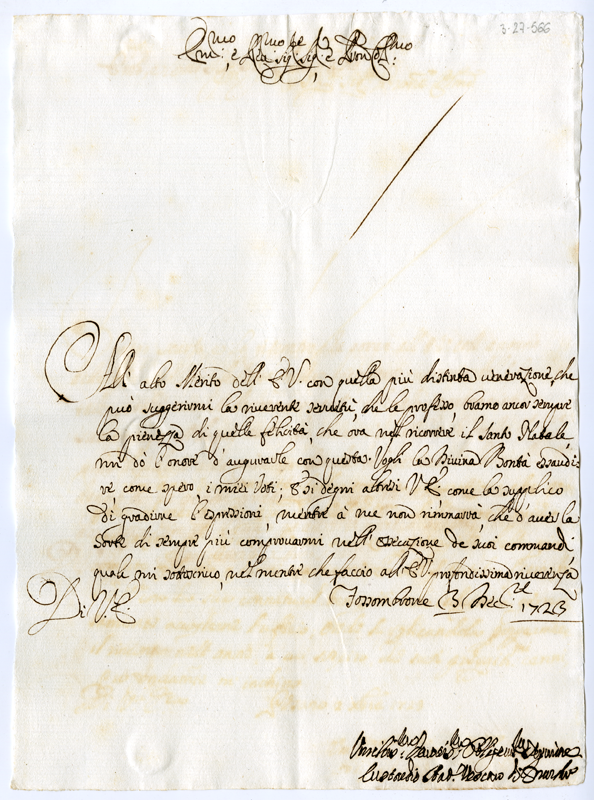 3-27-566
Em.mo e R.mo Sig.re Sig.re e Pron Col.mo
All' alto Merito dell' E V. con quella più distinta venerazione, che
può suggerirmi la riverente servitù, che le professo, bramo ancor sempre
la pienezza di quelle felicità, che ora nel ricorrere il Santo Natale
mi dò l'onore d'augurarle con questa. Vogli la Divina Bontà essaudi=
re, come spero i miei Voti; e si degni altresì V E. come la supplico
di gradirne l'espressioni, mentre à me non rimmarrà, che d'aver la
Sorte di sempre più comprovarmi nell' esecuzione de suoi commandi,
quale mi sottoscrivo, nel mentre che faccio all' E V. profondissima riverenza
Di V. E.
Fossombrone 3 Dec.re 1723